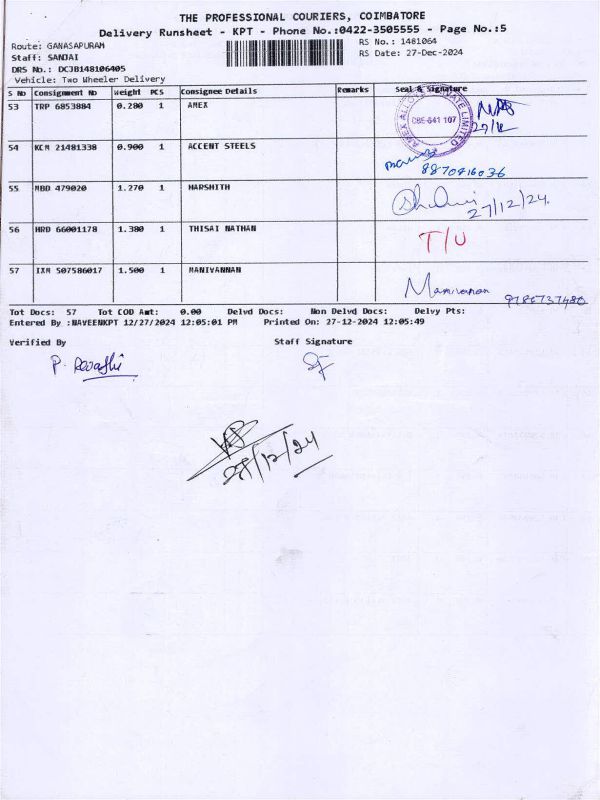 THE PROFESSIONAL COURIERS, COIMBATORE
Delivery Runsheet - KPT - Phone No.:0422-3505555 - Page No.:5
Route: GANASAPURAM RS No.: 1481064
Staff: SANJAI RS Date: 27-Dec-2024
DRS No.: DCJB148106405
Vehicle: Two Wheeler Delivery
S No Consignment No Weight PCS Consignee Details Remarks Seal & Signature
53 TRP 6853884 0.280 1 AMEX
AMEX ALLOYS PRIVATE LIMITED
CBE-641 107
27/12
54 KCM 21481338 0.900 1 ACCENT STEELS
8870816036
55 MBD 479020 1.270 1 HARSHITH
27/12/24.
56 HRD 66001178 1.380 1 THISAI NATHAN T/U
57 IXM 507586017 1.500 1 MANIVANNAN
Manivanan
Tot Docs: 57 Tot COD Amt: 0.00 Delvd Docs: Non Delvd Docs: Delvy Pts:
Entered By :NAVEENKPT 12/27/2024 12:05:01 PM Printed On: 27-12-2024 12:05:49
Verified By Staff Signature
27/12/24